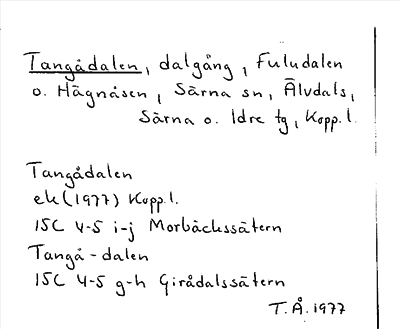 Tangådalen, dalgång, Fuludalen
o. Hägnåsen, Särna sn, Älvdals,
Särna o. Idre tg, Kopp.l.
Tangådalen
ek (1977) Kopp.l.
15C 4-5 i-j Morbäckssätern
Tangå-dalen
15C 4-5 g-h Girådalssätern
T.Å. 1977